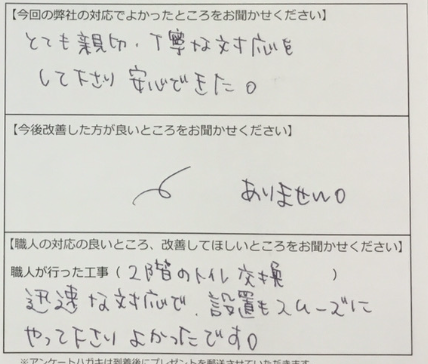 【今回の弊社の対応でよかったところをお聞かせください】
とても親切・丁寧な対応を
して下さり 安心できた。
【今後改善した方が良いところをお聞かせください】
ありません。
【職人の対応の良いところ、改善してほしいところをお聞かせください】
職人が行った工事（2階のトイレ交換）
迅速な対応で、設置もスムーズに
やって下さりよかったです。
※アンケートハガキは到着後にプレゼントを郵送させていただきます